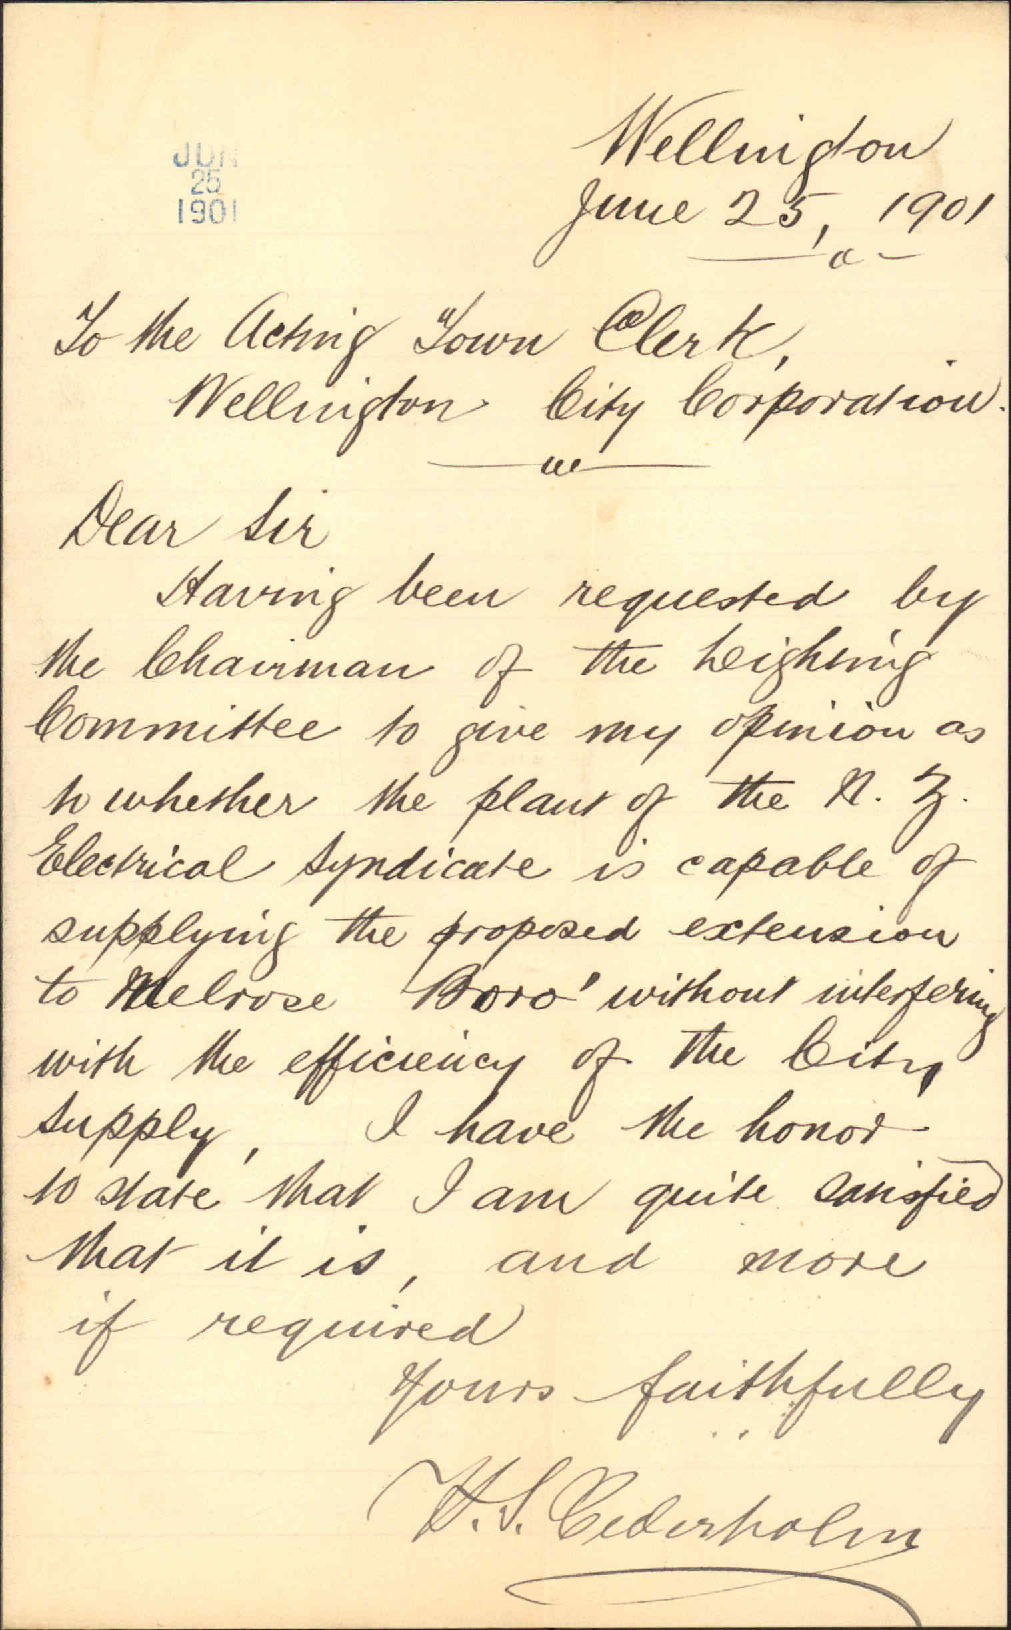 JUN
25
1901
Wellington
June 25, 1901
To the Acting Town Clerk,
Wellington City Corporation.
Dear Sir
Having been requested by
the Chairman of the Leighting
Committee to give my opinion as
to whether the plant of the N. Z.
Electrical Syndicate is capable of
supplying the proposed extension
to Melrose Boro' without interfering
with the efficiency of the City
supply, I have the honor
to state that I am quite satisfied
that it is, and more
if required
Yours faithfully
H. S. Cederholm